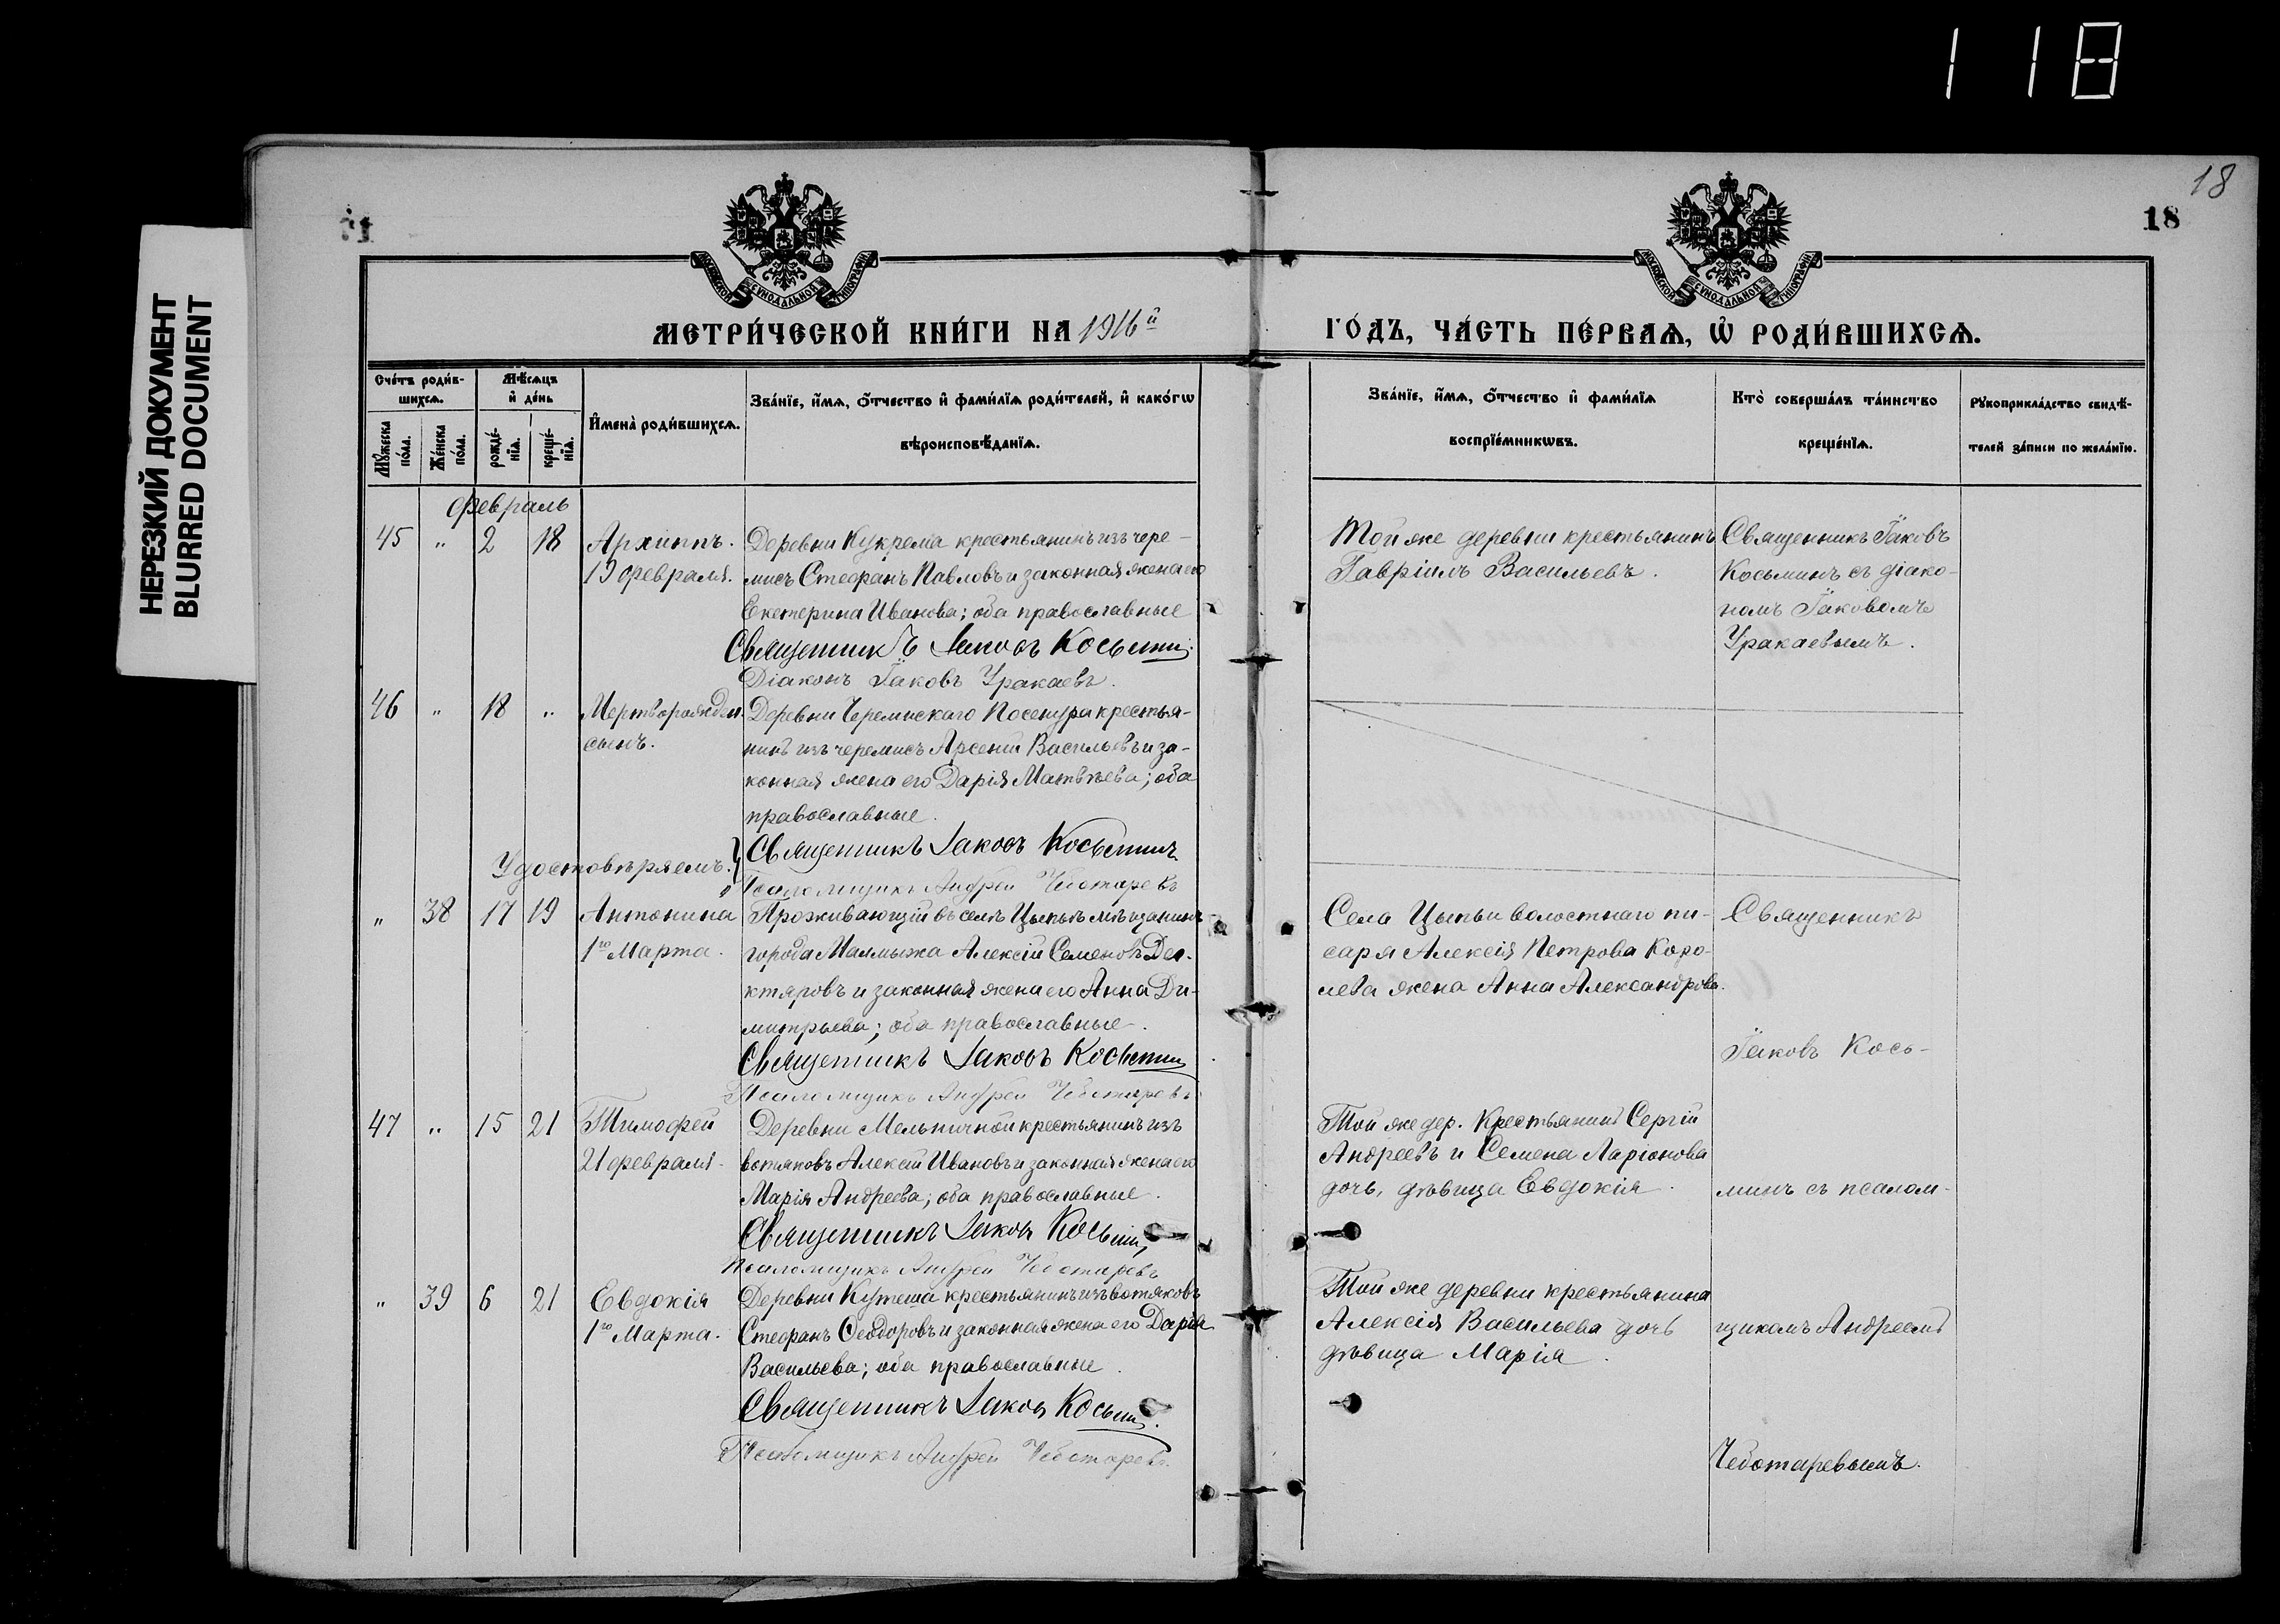 118
НЕРЕЗКИЙ ДОКУМЕНТ
BLURRED DOCUMENT
18
18
МОСКОВСКОЙ СѴНОДАЛЬНОЙ ТИПОГРАФІИ
МОСКОВСКОЙ СѴНОДАЛЬНОЙ ТИПОГРАФІИ
МЕТРИ́ЧЕСКОЙ КНИ́ГИ НА 1916й
ГО́ДЪ, ЧА́СТЬ ПЕ́РВАѦ, Ѡ҆ РОДИ́ВШИХСѦ.
Сче́тъ роди́в-
шихсѧ.
Мꙋ́жеска по́ла.
Же́нска по́ла.
Мѣ́сѧцъ
и҆ де́нь
рожде́-нїѧ.
креще́-нїѧ.
И҆мена̀ роди́вшихсѧ.
Зва́нїе, и҆́мѧ, ѻ҆́тчество и҆ фами́лїѧ роди́телей, и҆ како́гѡ
вѣроисповѣ́данїѧ.
Зва́нїе, и҆́мѧ, ѻ҆́тчество и҆ фами́лїѧ
воспрїе́мникѡвъ.
Кто̀ соверша́лъ та́инство
креще́нїѧ.
Рꙋкоприкла́дство свидѣ́-
телей за́писи по жела́нїю.
Февраль
45 " 2 18 Архиппъ. Деревни Кукрема крестьянинъ изъ чере-
19 февраля. мисъ Стефанъ Павловъ и законная жена его
Екатерина Иванова; оба православные
Священникъ Іаковъ Косьмин.
Діаконъ Іаковъ Уракаевъ.
Той же деревни крестьянинъ
Гавріилъ Васильевъ.
Священникъ Іаковъ
Косьминъ съ діако-
номъ Іаковомъ
Уракаевымъ.
46 " 18 " Мертворожден. Деревни Черемискаго Посенура крестья-
сынъ. нинъ изъ черемисъ Арсеній Васильевъ и за-
конная жена его Дарія Матвѣева; оба
православные.
Удостовѣряемъ: Священникъ Іаковъ Косьминъ
Псаломщикъ Андрей Чеботаревъ
" 38 17 19 Антонина Проживающій въ селѣ Цыпьѣ мѣщанинъ
1го Марта. города Малмыжа Алексій Семеновъ Дег-
ктяровъ и законная жена его Анна Ди-
митрьева; оба православные.
Священникъ Іаковъ Косьмин
Псаломщикъ Андрей Чеботаревъ
Села Цыпьи волостнаго пи-
саря Алексія Петрова Коро-
лева жена Анна Александрова.
Священникъ
Іаковъ Кось-
47 " 15 21 Тимофей Деревни Мельничной крестьянинъ изъ
21 февраля. вотяковъ Алексій Ивановъ и законная жена его
Марія Андреева; оба православные.
Священникъ Іаковъ Косьмин
Псаломщикъ Андрей Чеботаревъ
Той же дер. Крестьянинъ Сергій
Андреевъ и Семена Ларіонова
дочь, дѣвица Евдокія.
минъ съ псалом-
" 39 6 21 Евдокія Деревни Кутеша крестьянинъ изъ вотяковъ
1го Марта. Стефанъ Ѳеодоровъ и законная жена его Дарія
Васильева; оба православные.
Священникъ Іаковъ Косьмин.
Псаломщикъ Андрей Чеботаревъ.
Той же деревни крестьянина
Алексія Васильева дочь
дѣвица Марія.
щикомъ Андреемъ
Чеботаревымъ.